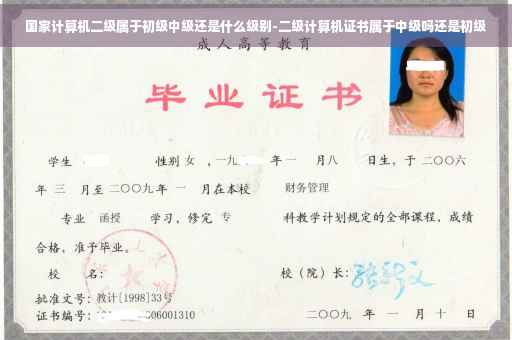 国家计算机二级属于初级中级还是什么级别-二级计算机证书属于中级吗还是初级
成人高等教育
毕业证书
学生 性别 女 ，一九 年 一 月八 日生，于 二〇〇六
年 三 月至 二〇〇九 年 一 月在本校 财务管理
专业 函授 学习，修完 专 科教学计划规定的全部课程，成绩
合格，准予毕业。
校 名： 校（院）长：
批准文号：教计[1998]33号
证书编号： 06001310 二〇〇九 年 一 月 十 日